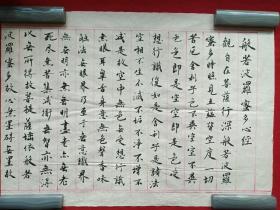 般若波羅蜜多心經
觀自在菩薩行深般若波羅
蜜多時照見五蘊皆空度一切
苦厄舍利子色不異空空不異
色色即是空空即是色受
想行識復如是舍利子是諸法
空相不生不滅不垢不淨不增不
減是故空中無色無受想行識
無眼耳鼻舌身意無色聲香味
觸法無眼界乃至無意識界
無無明亦無無明盡乃至無老
死盡無苦集滅道無智亦無得
以無所得故菩提薩埵依般若
波羅蜜多故心無罣礙無罣故